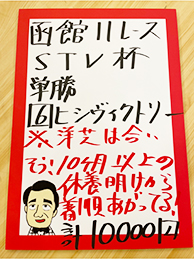 函館11レース
STV杯
単勝
6ヒシヴィクトリー
※洋芝は合い
そう!10ヶ月以上の
休養明けから
着順あがってる!
110000円